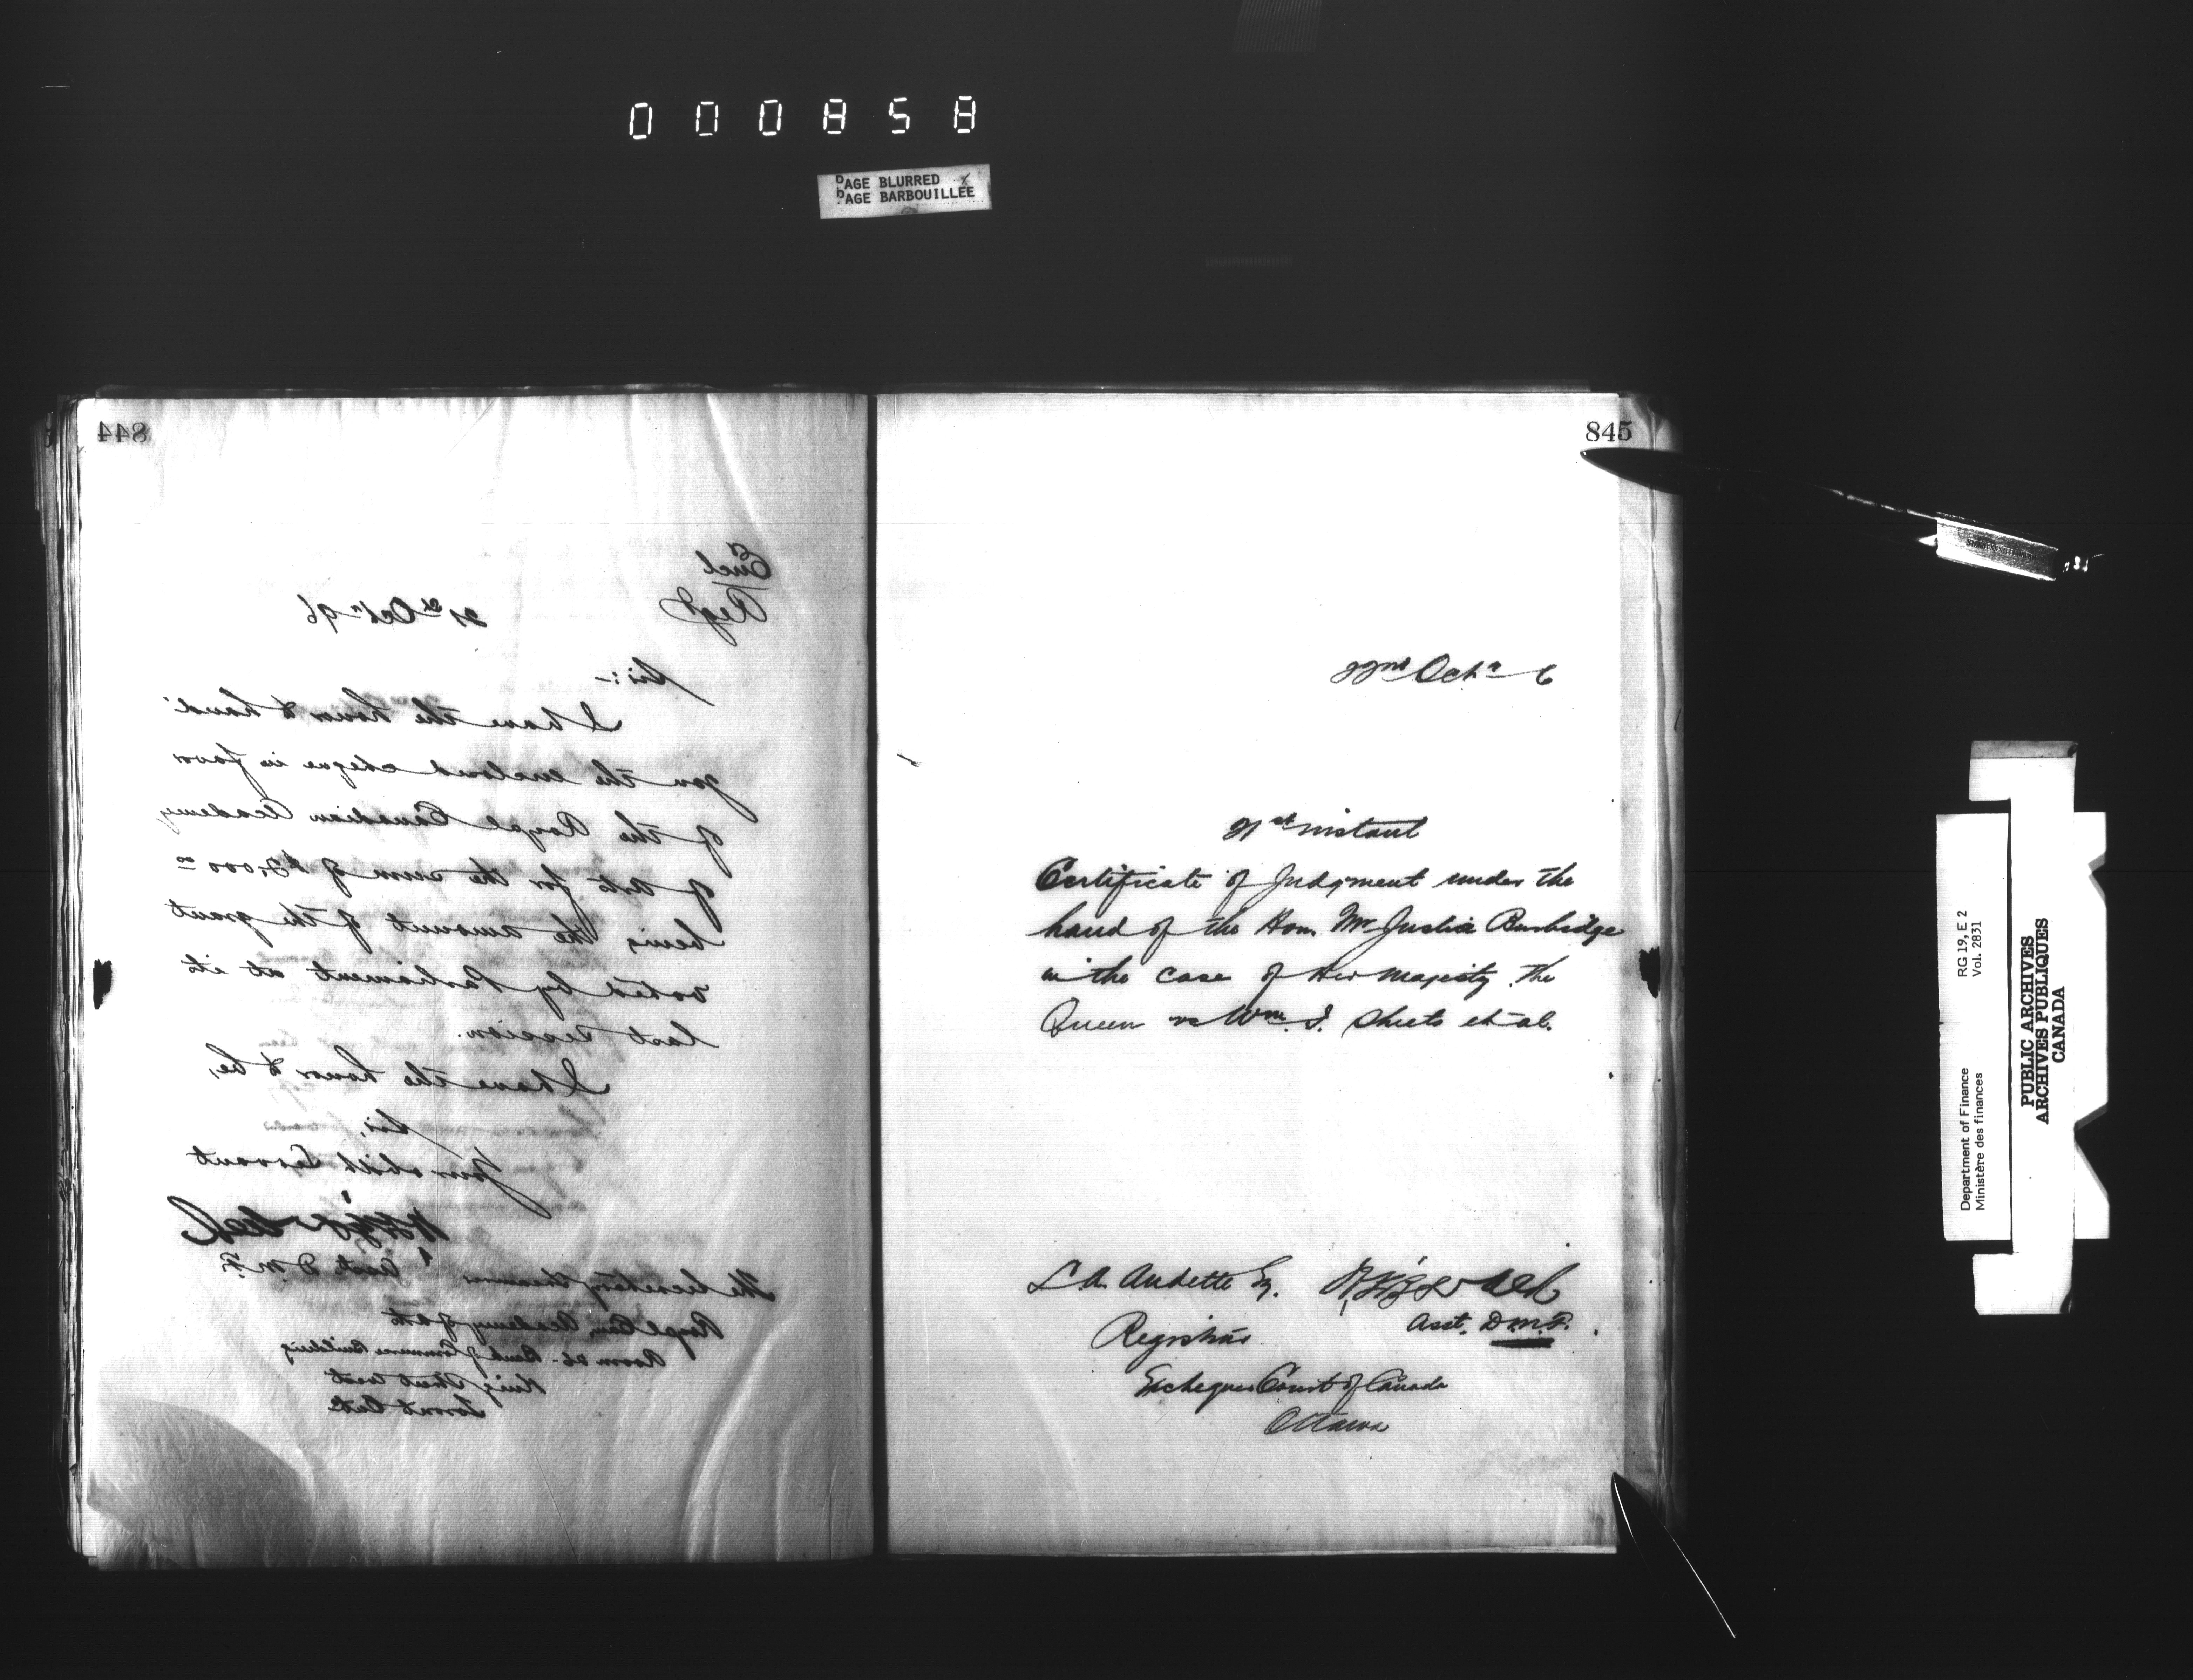 000858
PAGE BLURRED
PAGE BARBOUILLEE
844
Encl
Reg'd
21st Octr 96
Sir:-
I have the honor to hand
you the enclosed cheque in favor
of the Royal Canadian Academy
of Arts for the sum of $2,000 00
being the amount of the grant
voted by Parliament at its
last session.
I have the honor to be,
Sir,
Your obdt Servant
Asst. D.M.F.
The Secretary Treasurer
Royal Can. Academy of Arts
Room 26 - Bank of Commerce Building
King Street West
Toronto Ont.
845
22nd Octr 6
21st instant
Certificate of Judgment under the
hand of the Hon. Mr Justice Burbidge
in the case of Her Majesty the
Queen vs Wm. J. Sheets et al.
L. A. Audette Eq.
Asst. D.M.F.
Registrar
Exchequer Court of Canada
Ottawa
Department of Finance RG 19, E 2
Ministère des finances Vol. 2831
PUBLIC ARCHIVES
ARCHIVES PUBLIQUES
CANADA